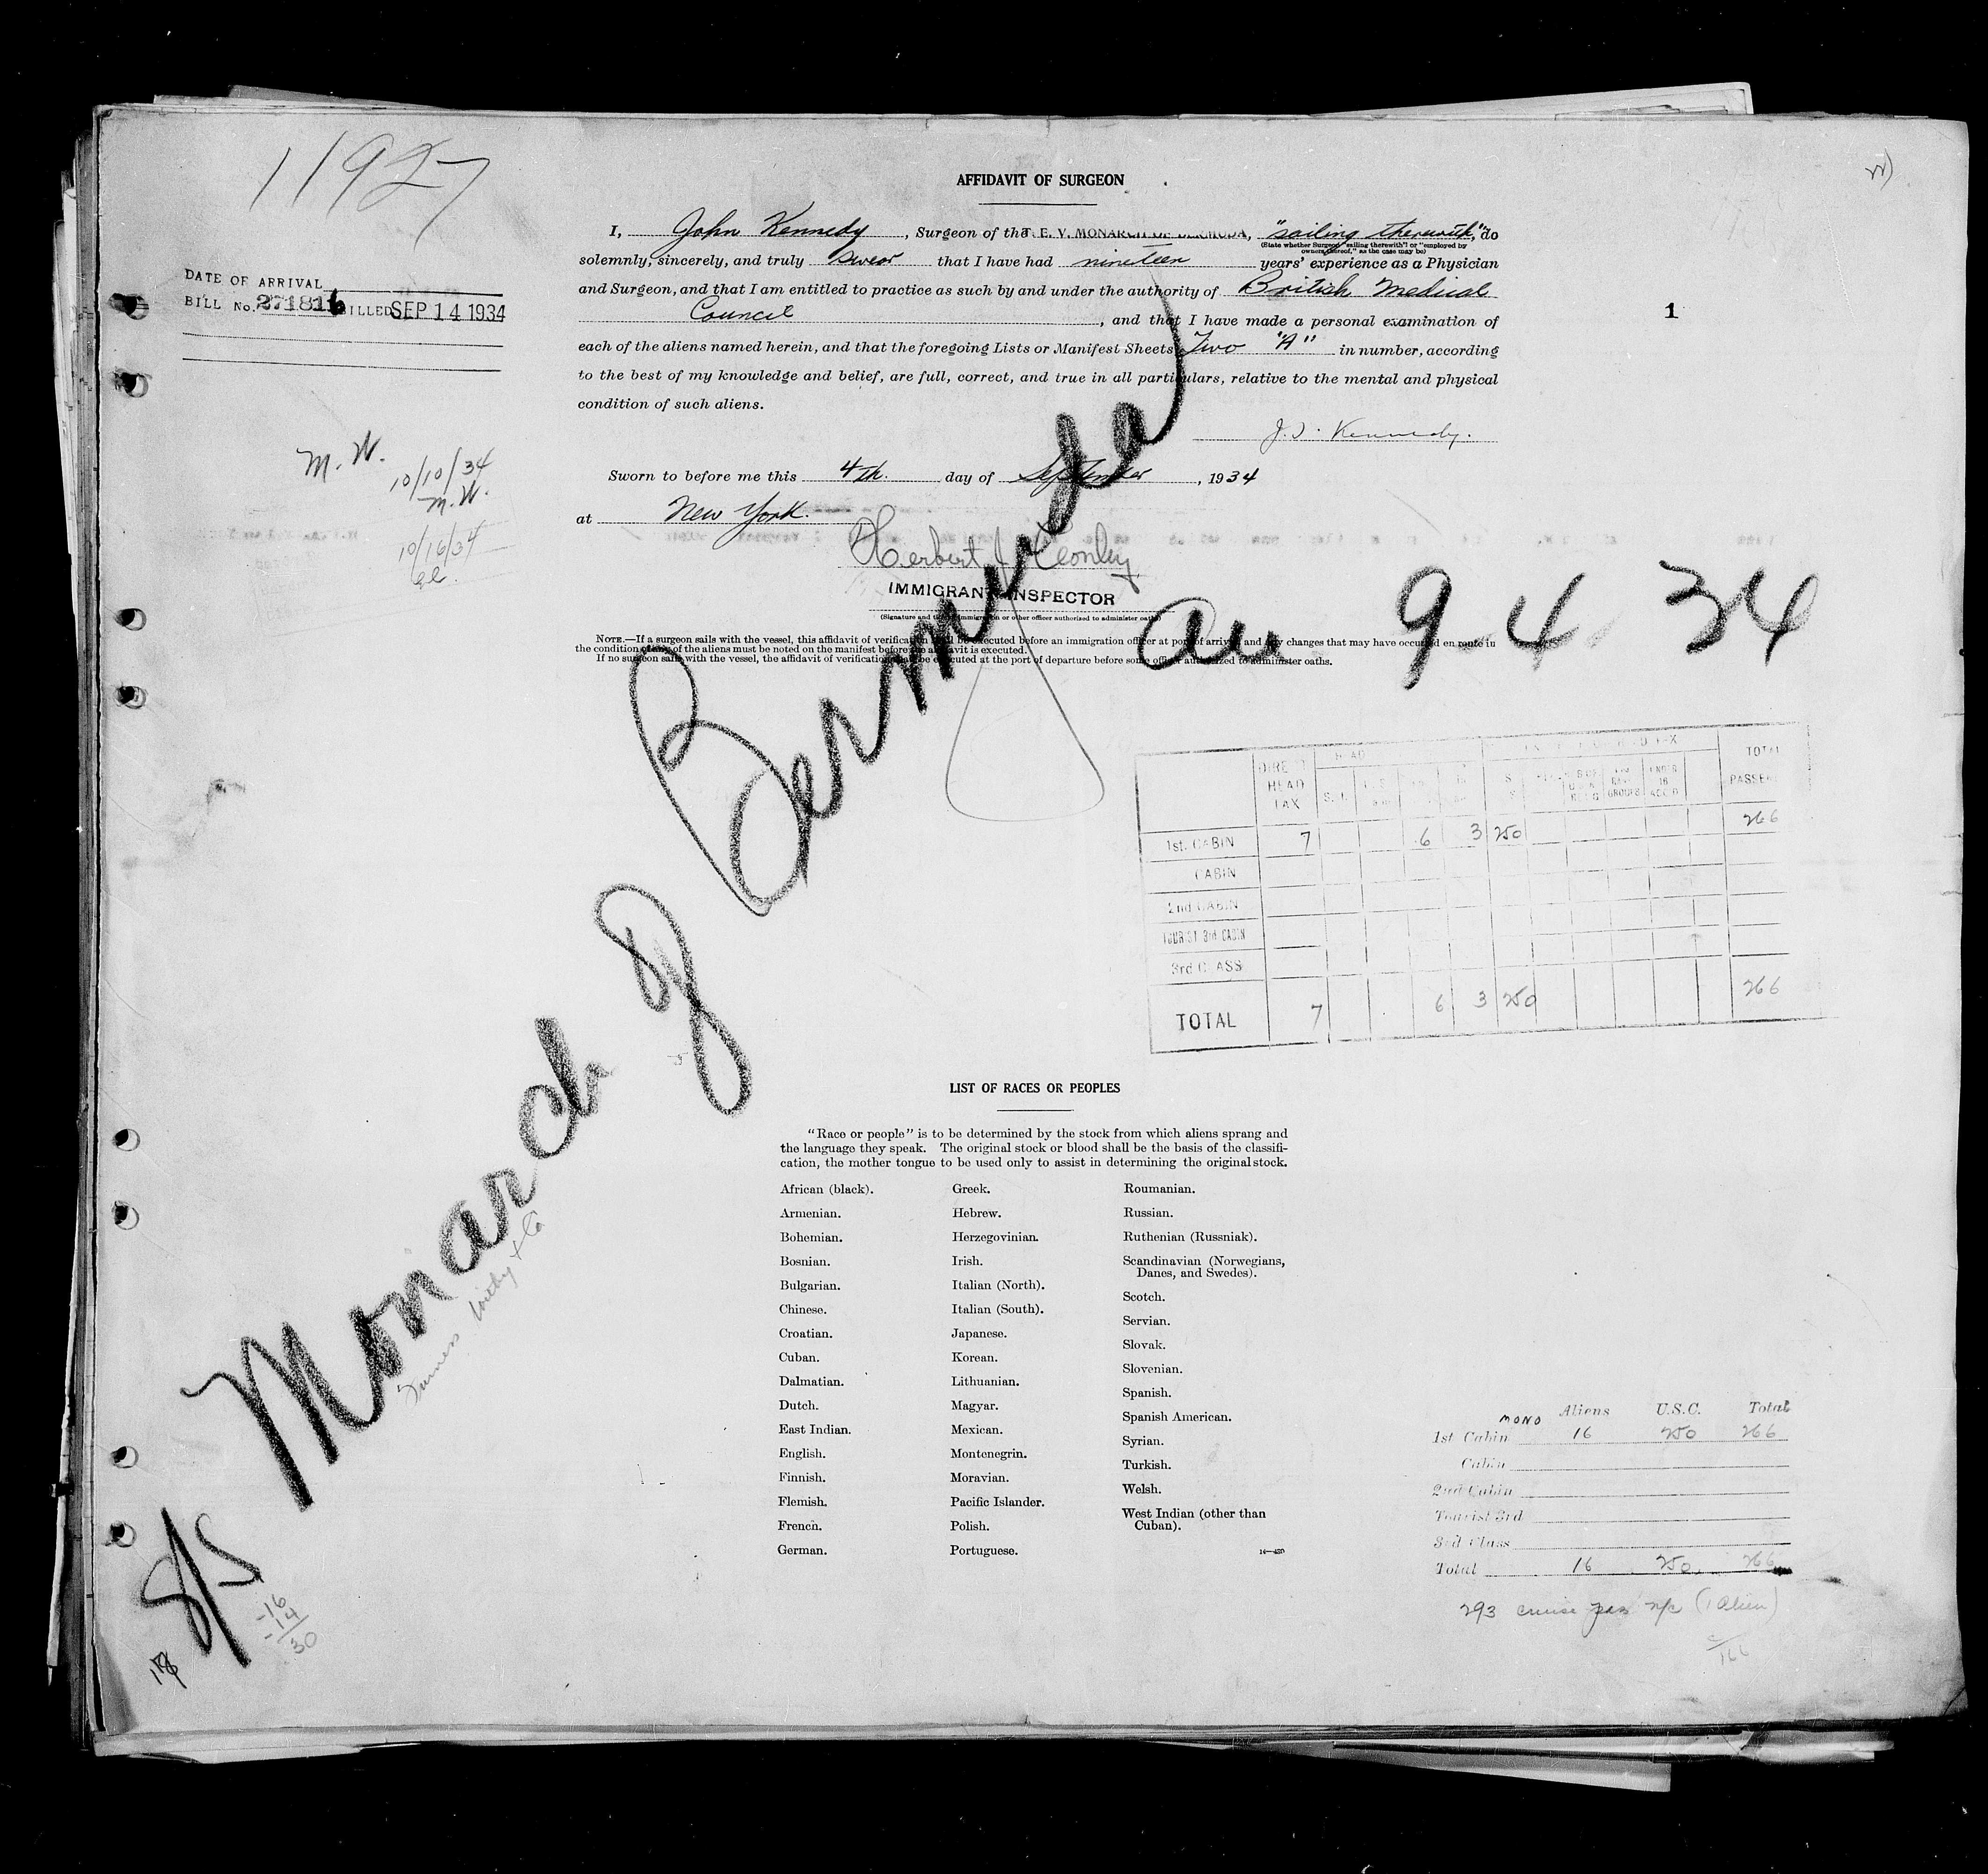 11927
AFFIDAVIT OF SURGEON
I, John Kennedy, Surgeon of the T. E. V. MONARCH OF BERMUDA, "sailing therewith," do
(State whether Surgeon "sailing therewith" or "employed by
owners thereof," as the case may be)
solemnly, sincerely, and truly swear that I have had nineteen years' experience as a Physician
and Surgeon, and that I am entitled to practice as such by and under the authority of British Medical
Council, and that I have made a personal examination of
each of the aliens named herein, and that the foregoing Lists or Manifest Sheets, Two "A" in number, according
to the best of my knowledge and belief, are full, correct, and true in all particulars, relative to the mental and physical
condition of such aliens.
J. Kennedy.
Sworn to before me this 4th. day of September, 1934
at New York.
Herbert J.
IMMIGRANT INSPECTOR
(Signature and title of immigration or other officer authorized to administer oaths)
NOTE.—If a surgeon sails with the vessel, this affidavit of verification shall be executed before an immigration officer at port of arrival and any changes that may have occurred en route in
the condition of any of the aliens must be noted on the manifest before the affidavit is executed.
If no surgeon sails with the vessel, the affidavit of verification shall be executed at the port of departure before some officer authorized to administer oaths.
DATE OF ARRIVAL
BILL No. 271816 BILLED SEP 14 1934
1
M. W.
10/10/34
M. W.
10/16/34
S/S Monarch of Bermuda
Furness Withy & Co
Arr 9 4 34
DIRECT HEAD TAX
TOTAL PASSE
1st. CABIN 7 6 3 250 266
CABIN
2nd CABIN
TOURIST 3rd CABIN
3rd CLASS
TOTAL 7 6 3 250 266
LIST OF RACES OR PEOPLES
"Race or people" is to be determined by the stock from which aliens sprang and
the language they speak. The original stock or blood shall be the basis of the classifi-
cation, the mother tongue to be used only to assist in determining the original stock.
African (black).
Armenian.
Bohemian.
Bosnian.
Bulgarian.
Chinese.
Croatian.
Cuban.
Dalmatian.
Dutch.
East Indian.
English.
Finnish.
Flemish.
French.
German.
Greek.
Hebrew.
Herzegovinian.
Irish.
Italian (North).
Italian (South).
Japanese.
Korean.
Lithuanian.
Magyar.
Mexican.
Montenegrin.
Moravian.
Pacific Islander.
Polish.
Portuguese.
Roumanian.
Russian.
Ruthenian (Russniak).
Scandinavian (Norwegians,
Danes, and Swedes).
Scotch.
Servian.
Slovak.
Slovenian.
Spanish.
Spanish American.
Syrian.
Turkish.
Welsh.
West Indian (other than
Cuban).
MONO Aliens U.S.C. Total
1st Cabin 16 250 266
Cabin
2nd Cabin
Tourist 3rd
3rd Class
Total 16 250 266
293 cruise pas (1 Alien)
-16
-14
30